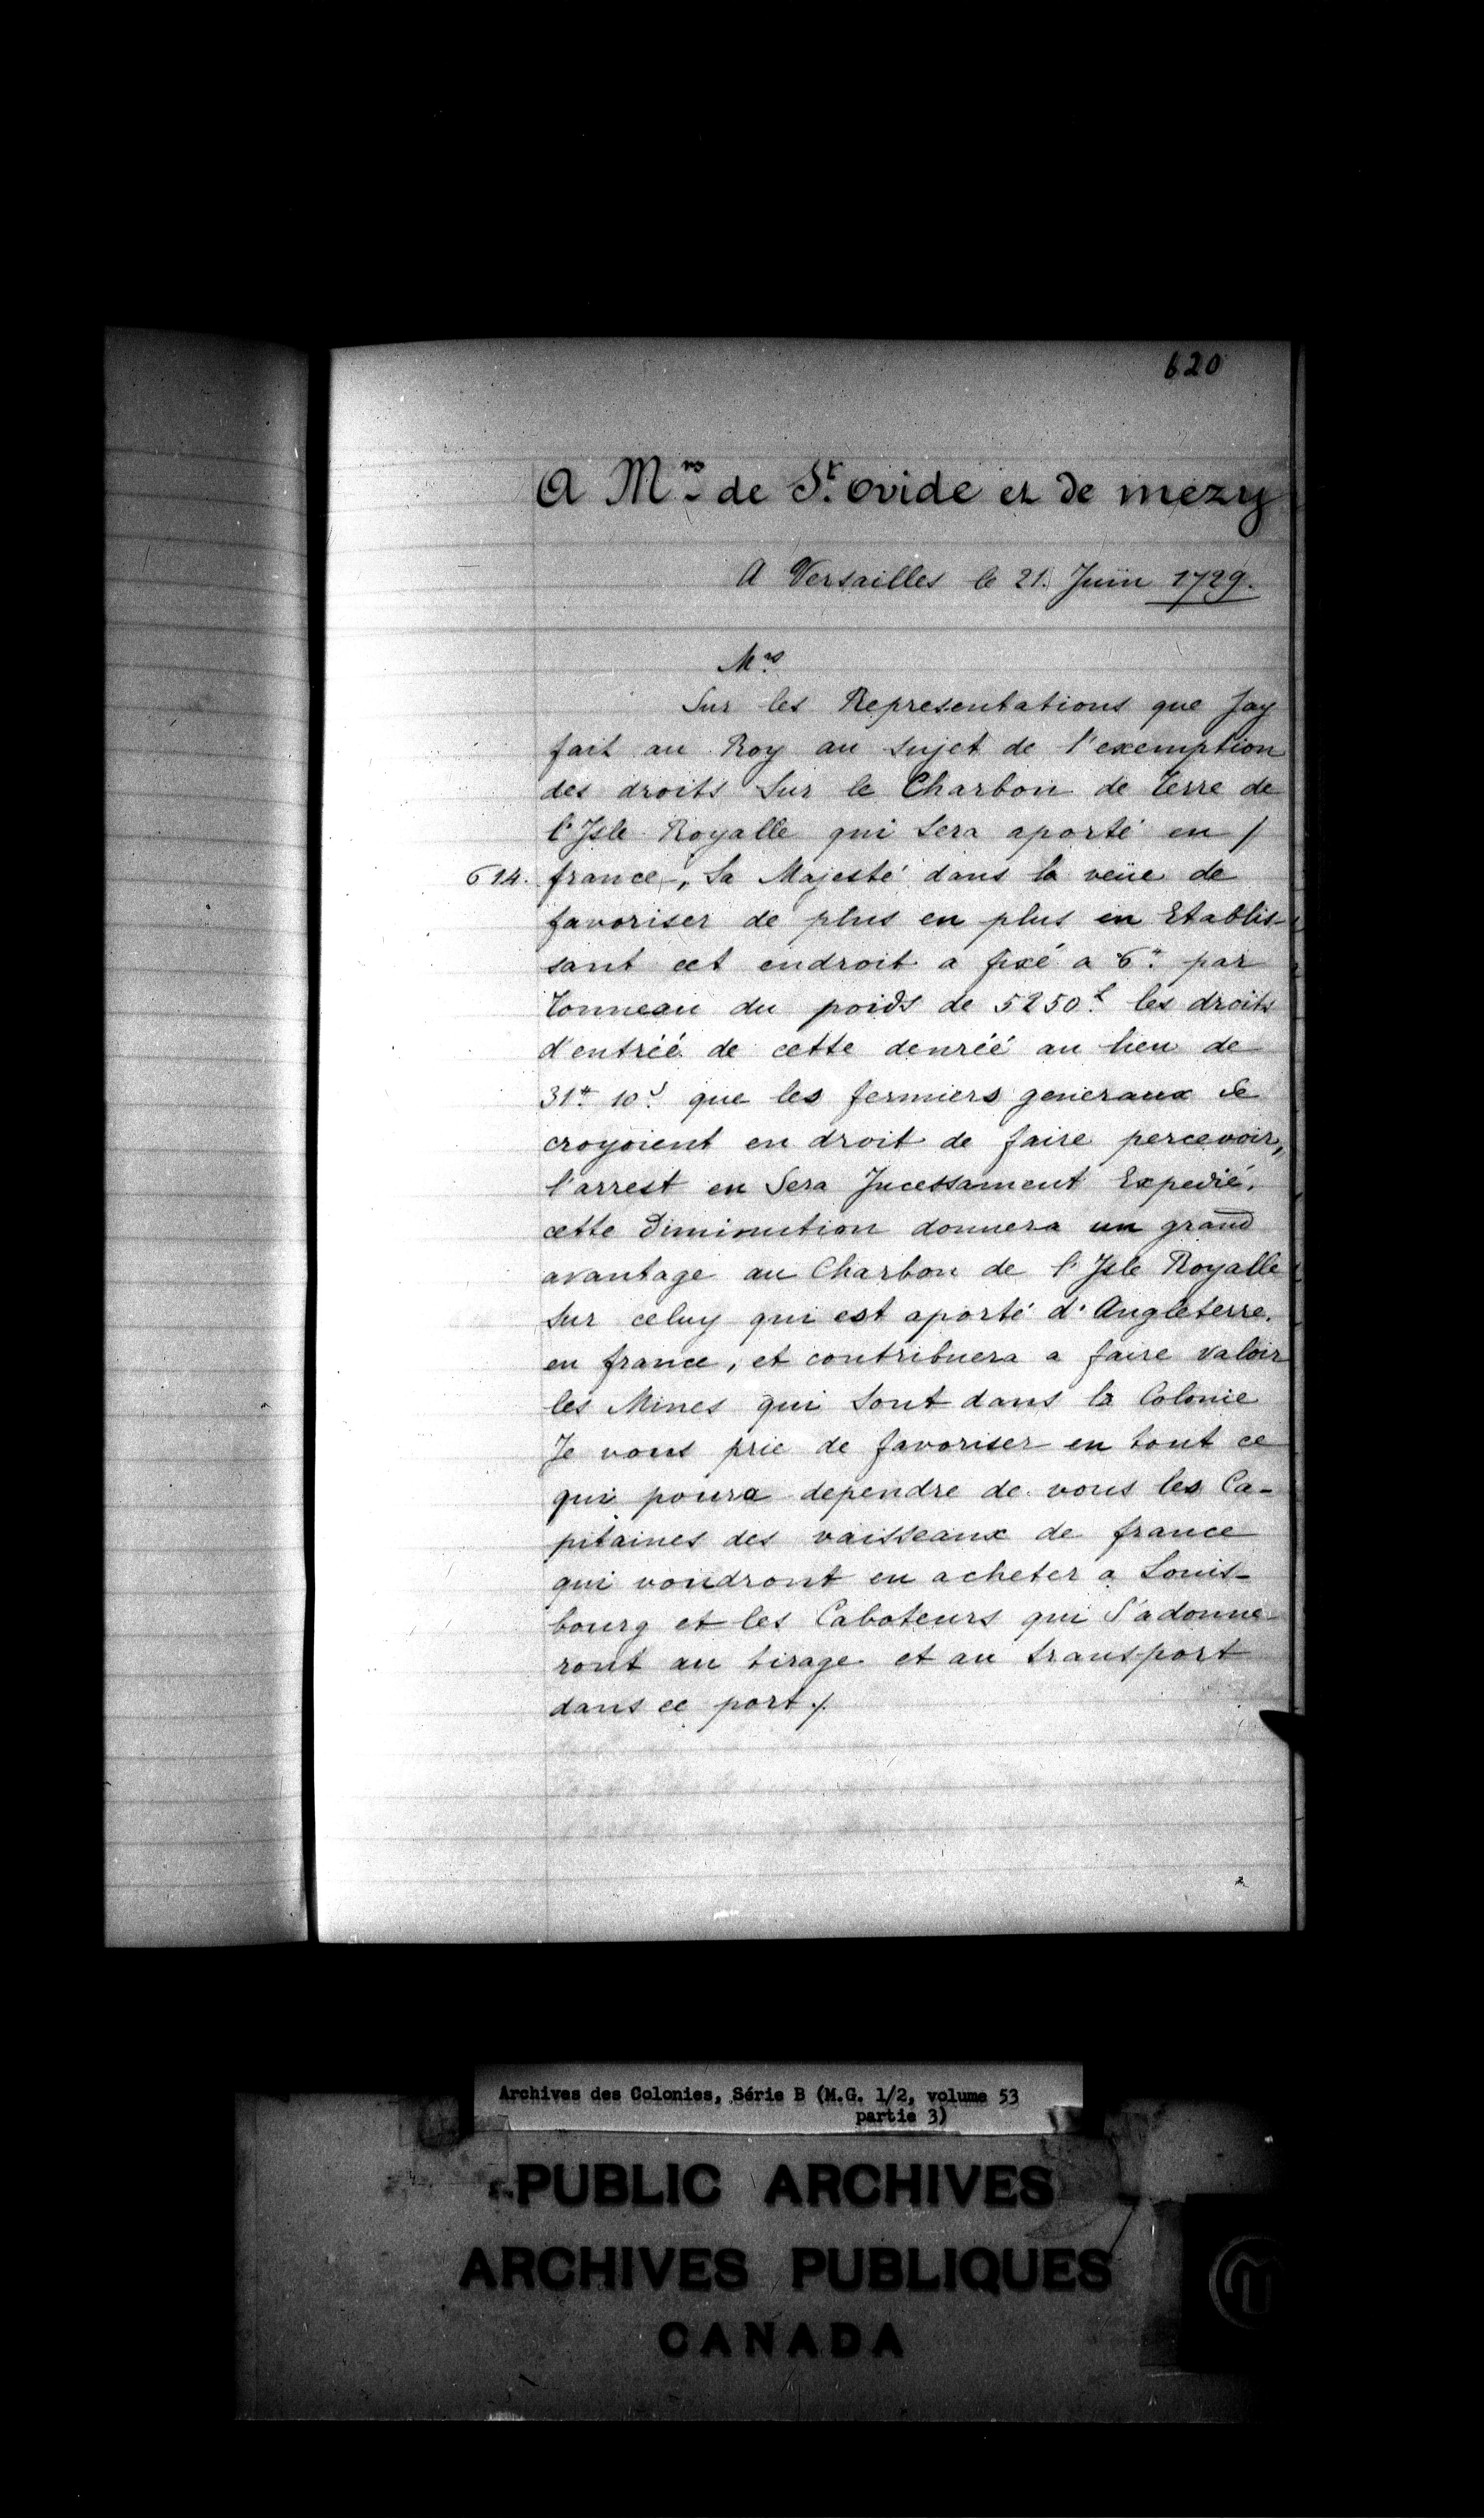 620
A Mrs de St. ovide et de mezy
A Versailles le 21. Juin 1729.
Mrs
Sur les Representations que Jay
fait au Roy au sujet de l'exemption
des droits Sur le Charbon de terre de
l'Isle Royalle qui Sera aporté en /
614. france, Sa Majesté dans la veüe de
favoriser de plus en plus en Etablis-
sant cet endroit a fixé a 6# par
tonneau du poids de 5250l les droits
d'entréé de cette denréé au lieu de
31# 10s que les fermiers generaux Se
croyoient en droit de faire percevoir,
l'arrest en Sera Incessament Expedié.
cette Diminution donnera un grand
avantage au Charbon de l'Isle Royalle
Sur celuy qui est aporté d'Angleterre.
en france, et contribuera a faire valoir
les Mines qui Sont dans la Colonie
Je vous prie de favoriser en tout ce
qui poura dependre de vous les Ca-
pitaines des vaisseaux de france
qui voudront en acheter a Louis-
bourg et les Caboteurs qui S'adonne-
ront au tirage et au transport
dans ce port ./.
Archives des Colonies, Série B (M.G. 1/2, volume 53
partie 3)
PUBLIC ARCHIVES
ARCHIVES PUBLIQUES
CANADA